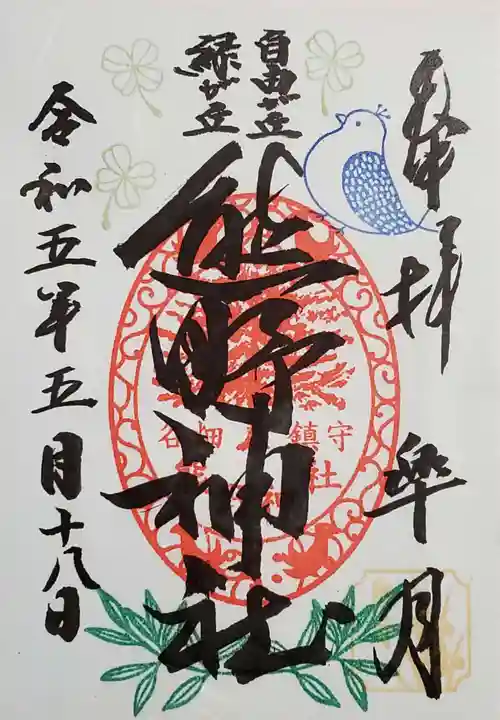 奉拝 皐月
自由が丘
緑が丘
熊野神社
谷畑 鎮守
令和五年五月十八日